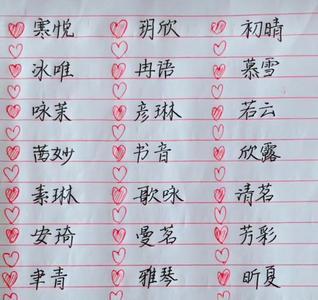 寒悦 玥欣 初晴
冰唯 冉语 慕雪
咏茉 彦琳 若云
茜妙 书音 欣露
素琳 歌咏 清茗
安琦 曼茗 芳彩
聿青 雅琴 昕夏